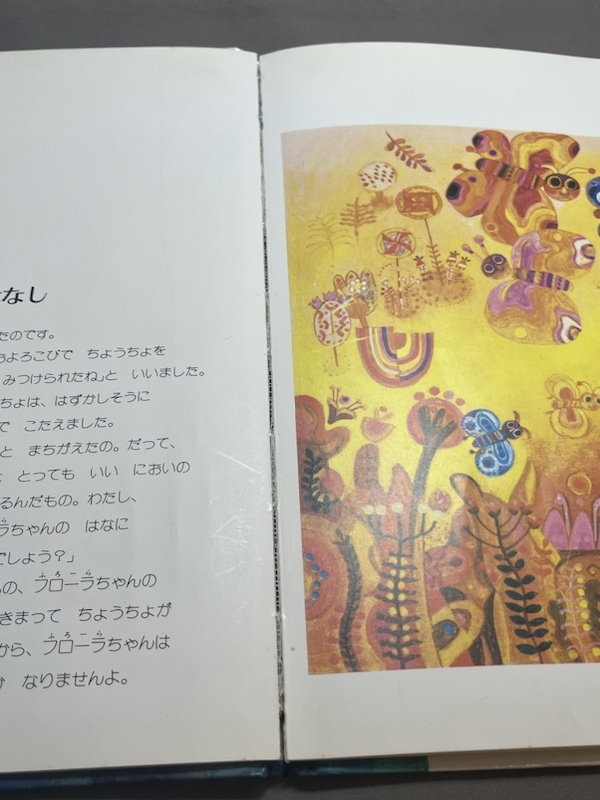 なし
たのです。
およろこびで ちょうちょを
みつけられたね」と いいました。
ちょは、はずかしそうに
で こたえました。
と まちがえたの。だって、
とっても いい においの
るんだもの。わたし、
ラちゃんの はなに
でしょう?」
の、フローラちゃんの
きまって ちょうちょが
から、フローラちゃんは
なりませんよ。